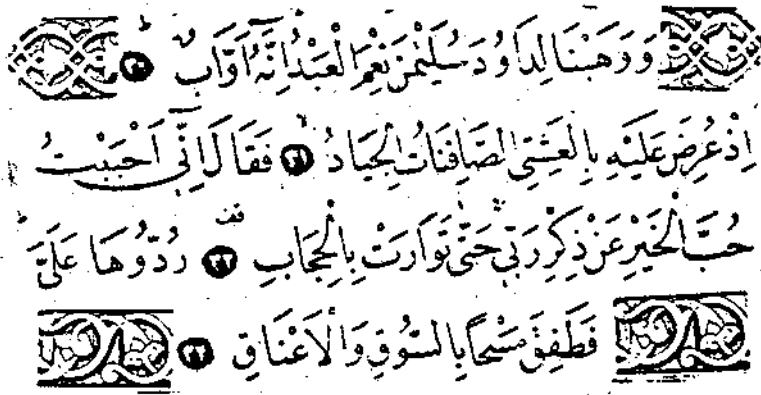 وَوَهَبْنَا لِدَاوُدَ سُلَيْمٰنَ نِعْمَ الْعَبْدُ اِنَّهُٓ اَوَّابٌ ﴿٣٠﴾
اِذْ عُرِضَ عَلَيْهِ بِالْعَشِىِّ الصَّافِنَاتُ الْجِيَادُ ﴿٣١﴾ فَقَالَ اِنّ۪ٓى اَحْبَبْتُ
حُبَّ الْخَيْرِ عَنْ ذِكْرِ رَبّ۪ى حَتّٰى تَوَارَتْ بِالْحِجَابِ ﴿٣٢﴾ رُدُّوهَا عَلَىَّ
فَطَفِقَ مَسْحًا بِالسُّوقِ وَالْاَعْنَاقِ ﴿٣٣﴾